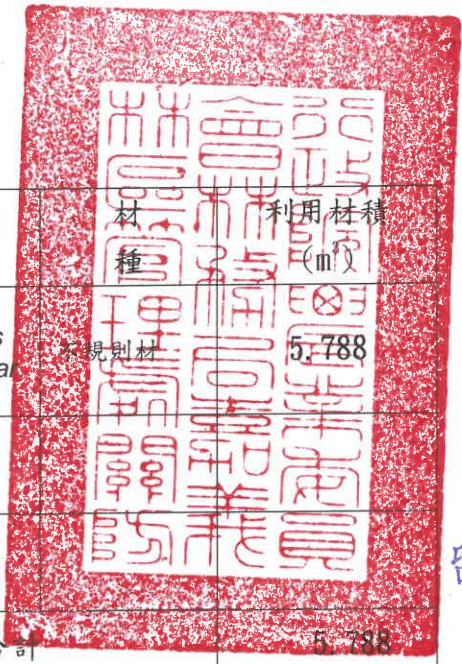 行政院農業委員
會林務局嘉義
林區管理處關防
材種 利用材積(m³)
不規則材 5.788
計 5.788